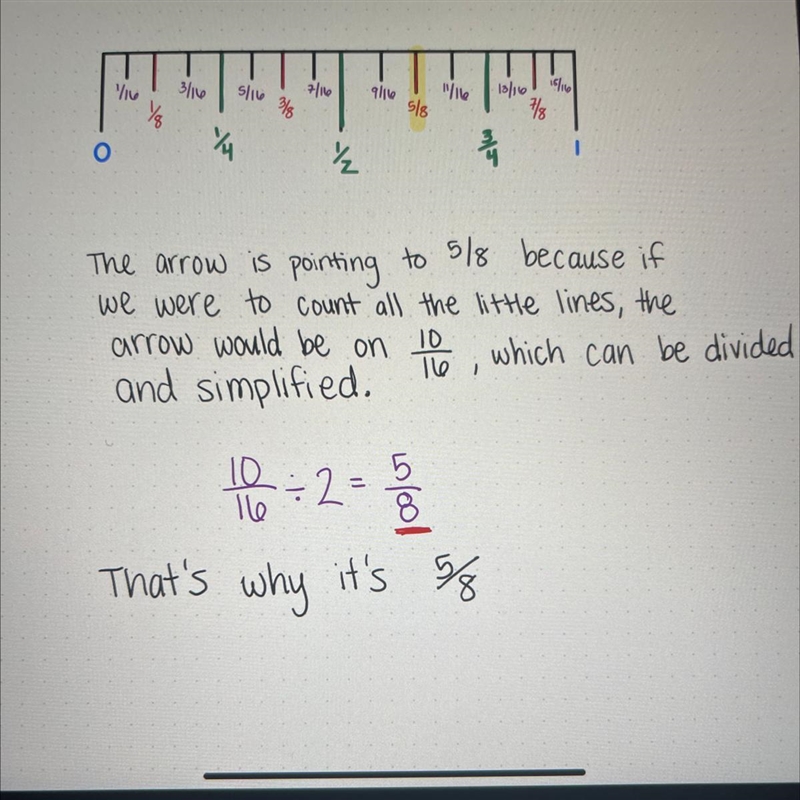 1/16 1/8 3/16 1/4 5/16 3/8 7/16 1/2 9/16 5/8 11/16 3/4 13/16 7/8 15/16
0 1
The arrow is pointing to 5/8 because if
we were to count all the little lines, the
arrow would be on 10/16, which can be divided
and simplified.
10/16 ÷ 2 = 5/8
That's why it's 5/8